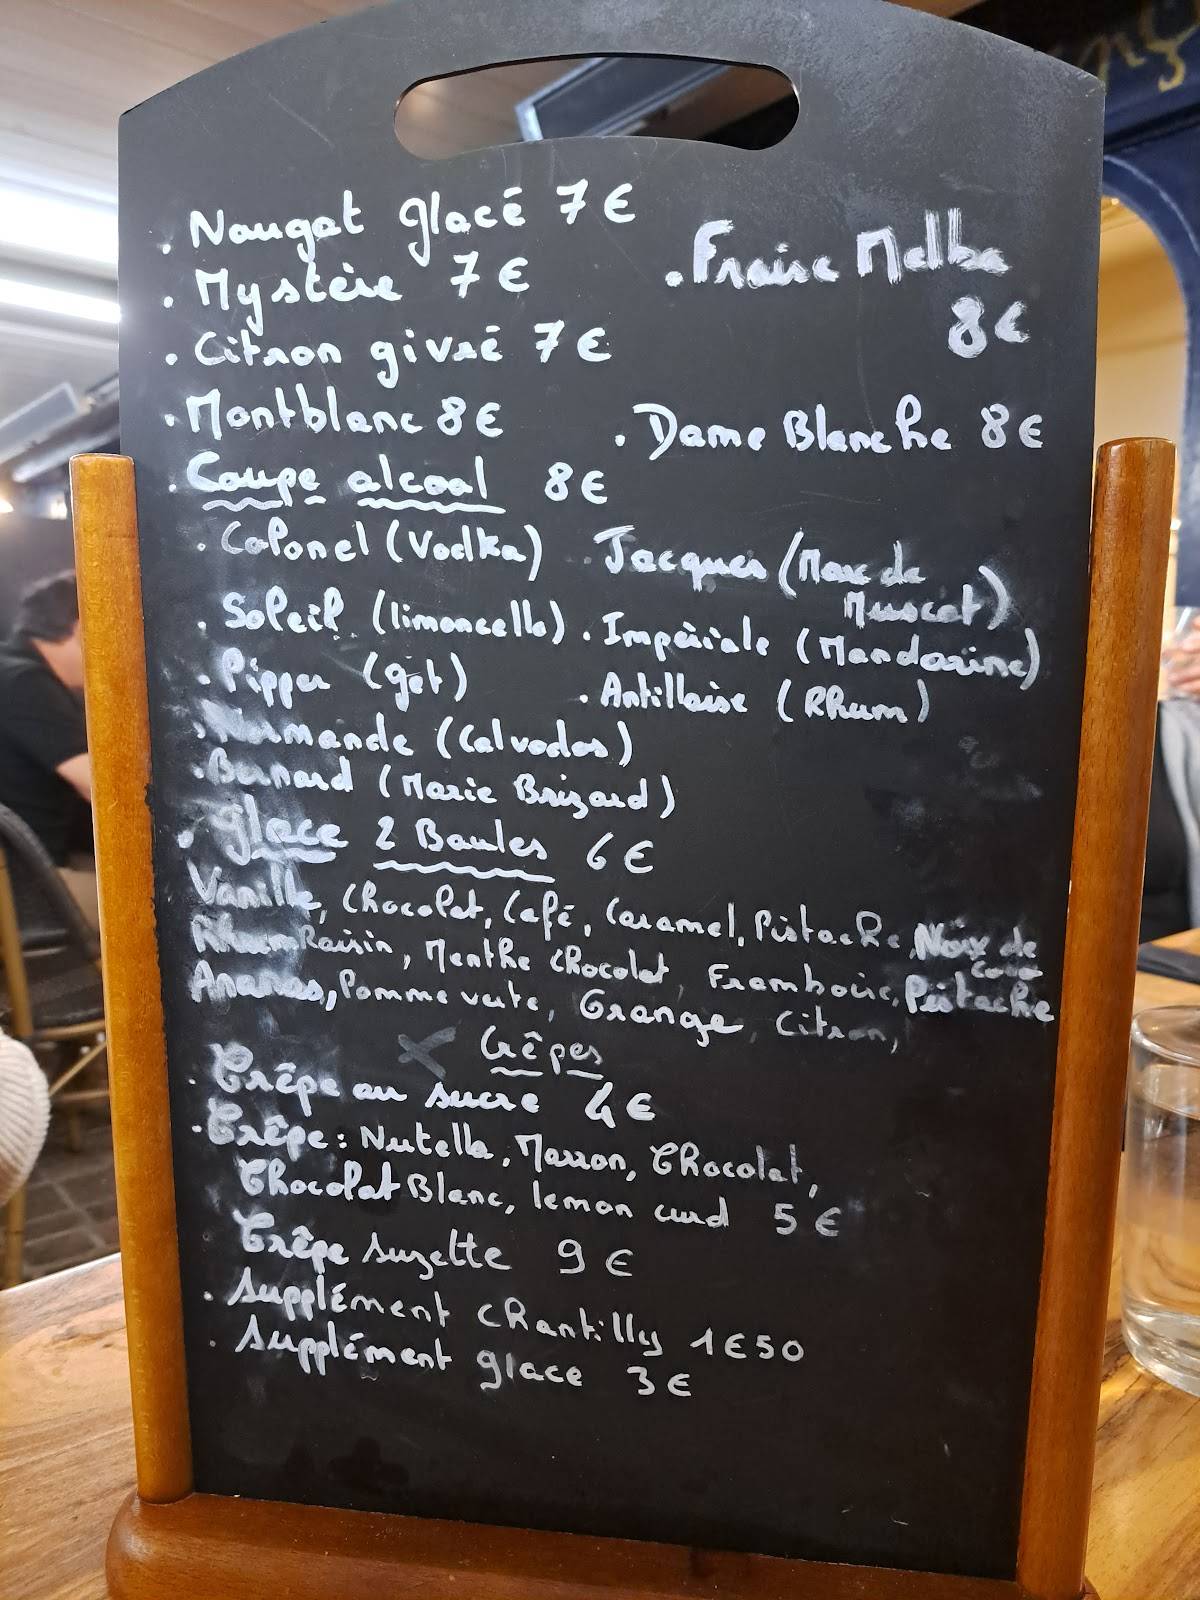 . Nougat glacé 7€
. Mystère 7€
. Fraise Melba
8€
. Citron givré 7€
. Montblanc 8€
. Dame Blanche 8€
. Coupe alcool 8€
. Colonel (Vodka)
. Jacques (Marc de
Muscat)
. Soleil (limoncello)
. Impériale (Mandarine)
. Pipper (get)
. Antillaise (Rhum)
. Normande (Calvados)
. Bernard (Marie Brizard)
. glace 2 Boules 6€
Vanille, Chocolat, Café, Caramel, Pistache, Noix de
Coco
Rhum Raisin, Menthe Chocolat, Framboise, Pistache
Ananas, Pomme verte, Orange, Citron,
Crêpes
. Crêpe au sucre 4€
. Crêpe: Nutella, Marron, Chocolat,
Chocolat Blanc, lemon curd 5€
Crêpe Suzette 9€
. Supplément chantilly 1€50
. Supplément glace 3€